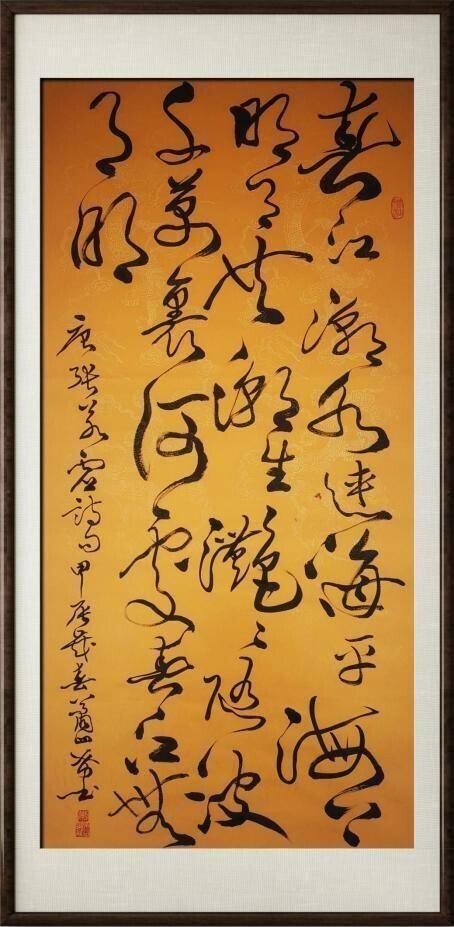 春江潮水連海平海上
明月共潮生灩々隨波
千萬裏何處春江無
月明
唐張若虛詩句甲辰歲春